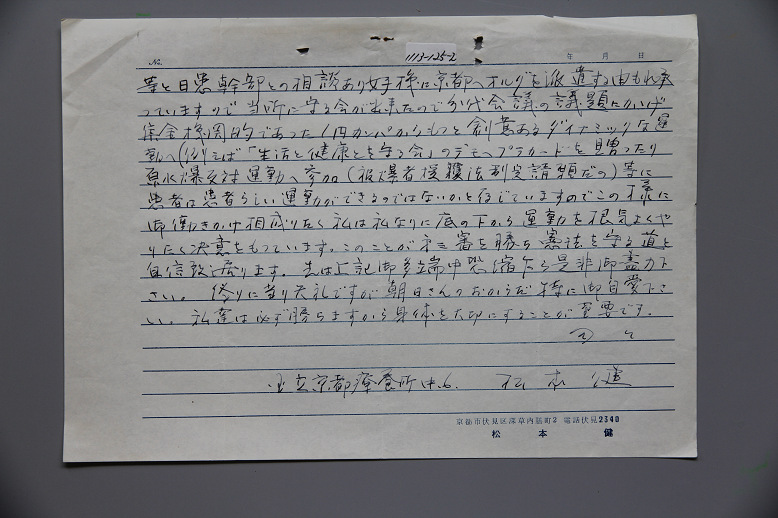 No. 1113-125-2 年 月 日
等と日患幹部との相談あり好子様に京都へオルグを派遣する由もれ承
っていますので当所に守る会が出来たので分代会議の議題にかゝげ
集金機関的であった1円カンパからもっと創意あるダイナミックな運
動へ(例えば「生活と健康とを守る会」のデモへプラカードを贈ったり
原水爆反対運動へ参加(被爆者援護法制定請願だの)等に
患者は患者らしい運動ができるのではないかと存じていますのでこの様に
御働きかけ相成りたく私は私なりに底の下から運動を根気よくや
りたく決意をもっています。このことが第三審を勝ち憲法を守る道と
自信致し居ります。先は上記御多端中恐縮乍ら是非御盡力下
さい。終りに当り失礼ですが朝日さんのおからだ特に御自愛下さ
い。私達は必ず勝ちますから身体を大切にすることが重要です。
国立京都療養所中.6. 松本健
京都市伏見区深草内膳町2 電話伏見2340
松本健